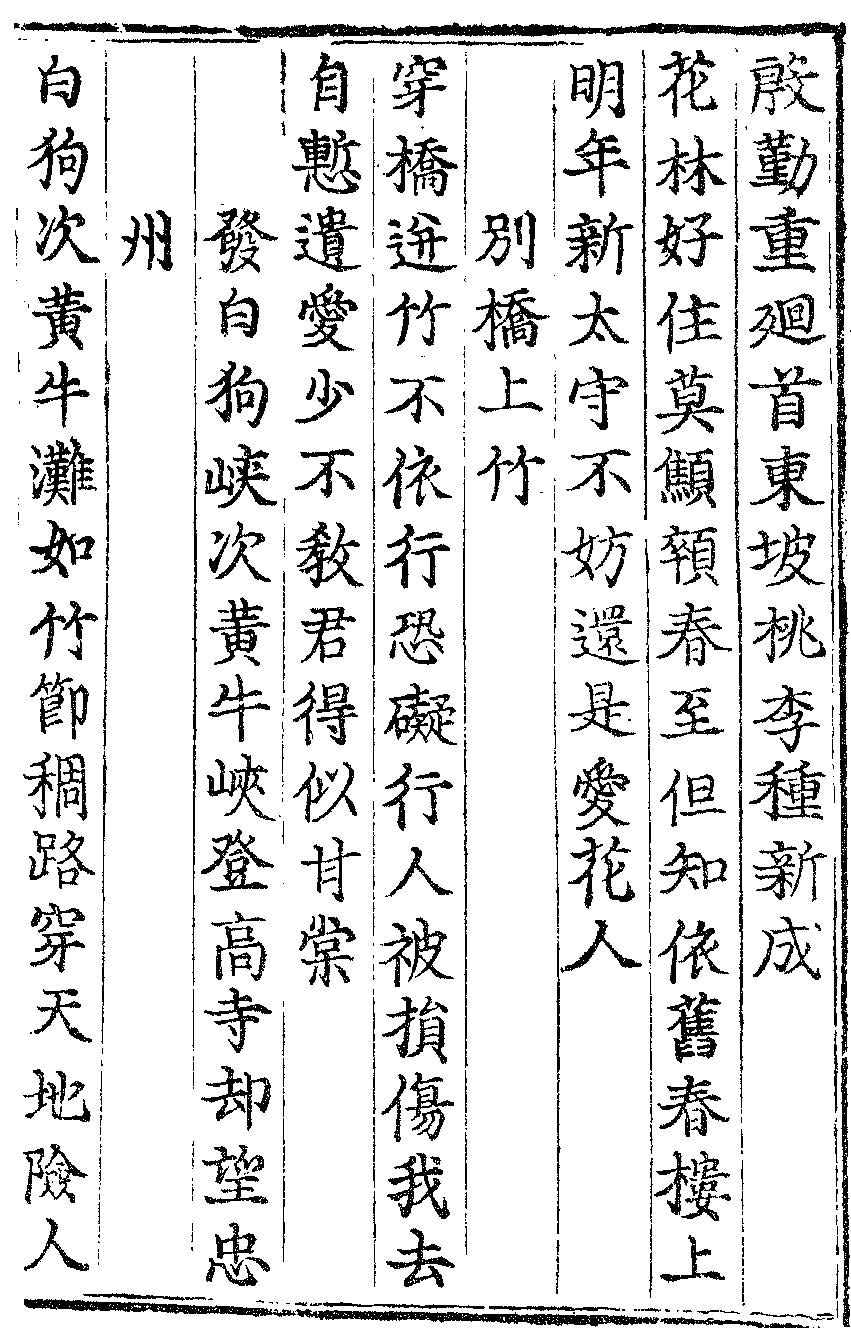 殷勤重廻首東坡桃李種新成
花林好住莫顦顇春至但知依舊春樓上
明年新太守不妨還是愛花人
別橋上竹
穿橋迸竹不依行恐礙行人被損傷我去
自慙遺愛少不教君得似甘棠
發白狗峽次黃牛峽登高寺却望忠
州
白狗次黃牛灘如竹節稠路穿天地險人